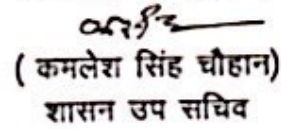 ( कमलेश सिंह चौहान)
शासन उप सचिव